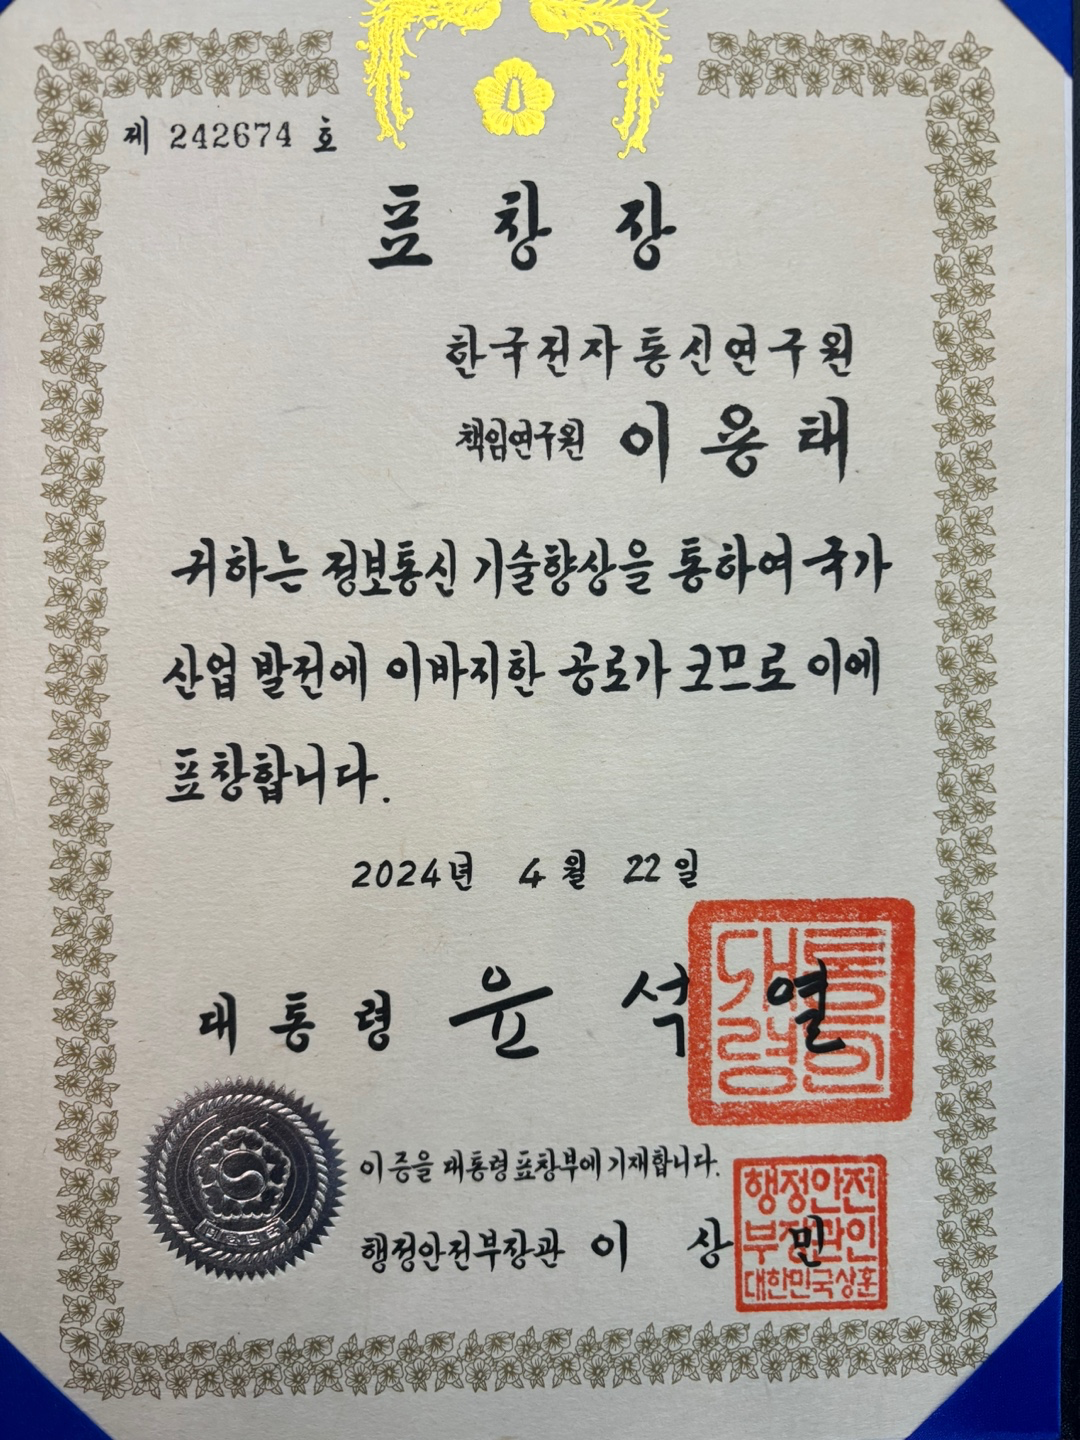 제 242674 호
표창장
한국전자통신연구원
책임연구원 이용태
귀하는 정보통신 기술향상을 통하여 국가
산업 발전에 이바지한 공로가 크므로 이에
표창합니다.
2024년 4월 22일
대통령 윤석열
대통령의인
이 증을 대통령표창부에 기재합니다.
행정안전부장관 이상민
행정안전
부장관인
대한민국상훈